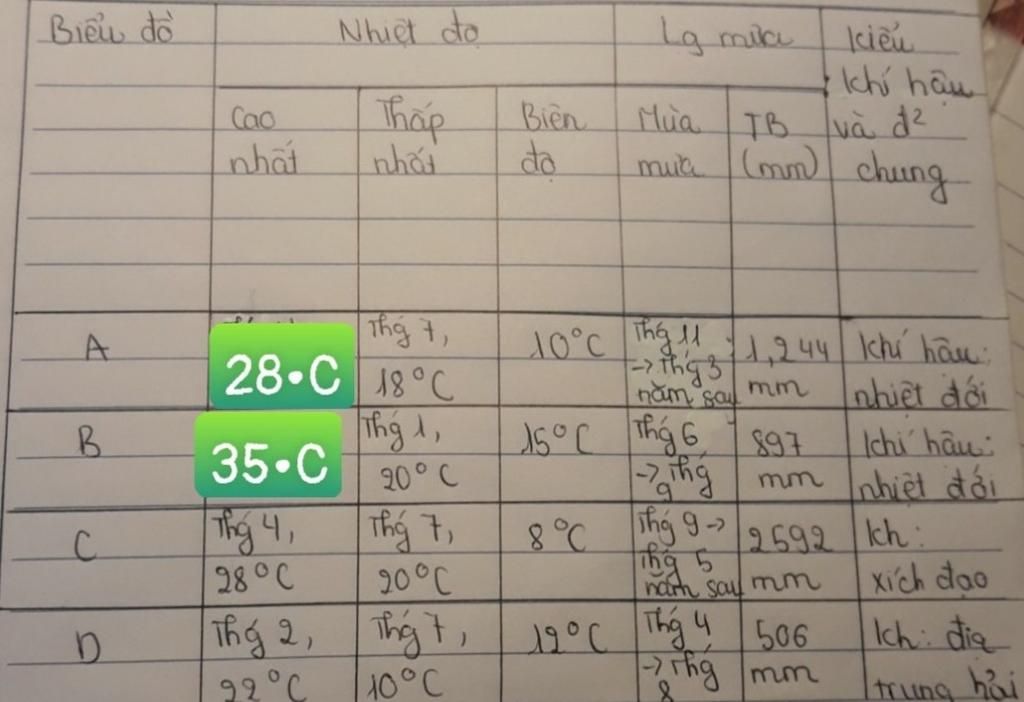 Biểu đồ Nhiệt độ Lg mưa kiểu
khí hậu
và đ²
chung
Cao
nhất
Thấp
nhất
Biên
độ
Mùa
mưa
TB
(mm)
A
28•C
Thg 7,
18°C
10°C
Thg 11
-> Thg 3
năm sau
1,244
mm
Khí hậu:
nhiệt đới
B
35•C
Thg 1,
20°C
15°C
Thg 6
-> Thg
9
897
mm
Khí hậu:
nhiệt đới
C
Thg 4,
28°C
Thg 7,
20°C
8°C
Thg 9 ->
Thg 5
năm sau
2592
mm
Kh:
xích đạo
D
Thg 2,
22°C
Thg 7,
10°C
12°C
Thg 4
-> Thg
8
506
mm
Kh: địa
trung hải